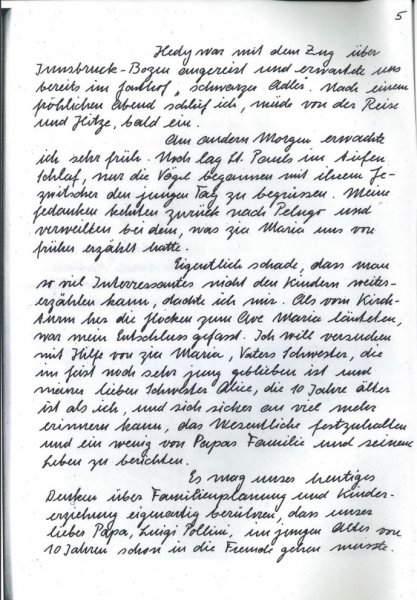 5
Hedy war mit dem Zug über
Innsbruck-Bozen angereist und erwartete uns
bereits im Gasthof "schwarzer Adler". Nach einem
fröhlichen Abend schlief ich, müde von der Reise
und Hitze, bald ein.
Am andern Morgen erwachte
ich sehr früh. Noch lag St. Pauls im tiefen
Schlaf, nur die Vögel begannen mit ihrem Ge-
zwitscher den jungen Tag zu begrüssen. Meine
Gedanken kehrten zurück nach Pelugo und
verweilten bei dem, was zia Maria uns von
früher erzählt hatte.
Eigentlich schade, dass man
so viel Interressantes nicht den Kindern weiter-
erzählen kann, dachte ich mir. Als vom Kirch-
turm her die Glocken zum Ave Maria läuteten,
war mein Entschluss gefasst. Ich will versuchen
mit Hilfe von zia Maria, Vaters Schwester, die
im Geist noch sehr jung geblieben ist und
meiner lieben Schwester Alice, die 10 Jahre älter
ist als ich, und sich sicher an viel mehr
erinnern kann, das Wesentliche festzuhalten
und ein wenig von Papas Familie und seinem
Leben zu berichten.
Es mag unser heutiges
Denken über Familienplanung und Kinder-
erziehung eigenartig berühren, dass unser
lieber Papa, Luigi Pollini, im jungen Alter von
10 Jahren schon in die Fremde gehen musste.